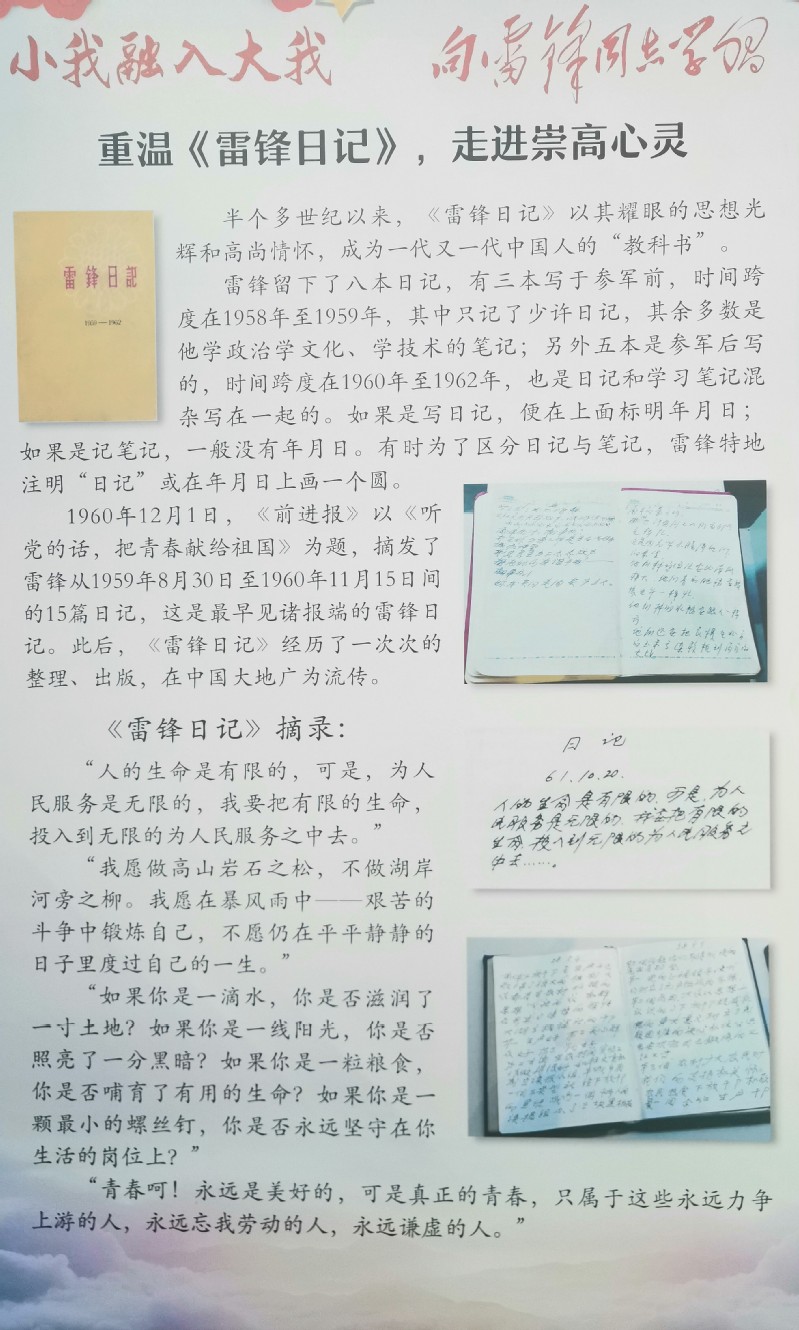 小我融入大我 向雷锋同志学习
重温《雷锋日记》，走进崇高心灵
雷锋日記
1959—1962
半个多世纪以来，《雷锋日记》以其耀眼的思想光
辉和高尚情怀，成为一代又一代中国人的“教科书”。
雷锋留下了八本日记，有三本写于参军前，时间跨
度在1958年至1959年，其中只记了少许日记，其余多数是
他学政治学文化、学技术的笔记；另外五本是参军后写
的，时间跨度在1960年至1962年，也是日记和学习笔记混
杂写在一起的。如果是写日记，便在上面标明年月日；
如果是记笔记，一般没有年月日。有时为了区分日记与笔记，雷锋特地
注明“日记”或在年月日上画一个圆。
1960年12月1日，《前进报》以《听
党的话，把青春献给祖国》为题，摘发了
雷锋从1959年8月30日至1960年11月15日间
的15篇日记，这是最早见诸报端的雷锋日
记。此后，《雷锋日记》经历了一次次的
整理、出版，在中国大地广为流传。
《雷锋日记》摘录：
“人的生命是有限的，可是，为人
民服务是无限的，我要把有限的生命，
投入到无限的为人民服务之中去。”
“我愿做高山岩石之松，不做湖岸
河旁之柳。我愿在暴风雨中——艰苦的
斗争中锻炼自己，不愿仍在平平静静的
日子里度过自己的一生。”
“如果你是一滴水，你是否滋润了
一寸土地？如果你是一线阳光，你是否
照亮了一分黑暗？如果你是一粒粮食，
你是否哺育了有用的生命？如果你是一
颗最小的螺丝钉，你是否永远坚守在你
生活的岗位上？”
“青春呵！永远是美好的，可是真正的青春，只属于这些永远力争
上游的人，永远忘我劳动的人，永远谦虚的人。”
日记
61.10.20.
人的生命是有限的，可是，为人
民服务是无限的，我要把有限的
生命，投入到无限的为人民服务之
中去……。